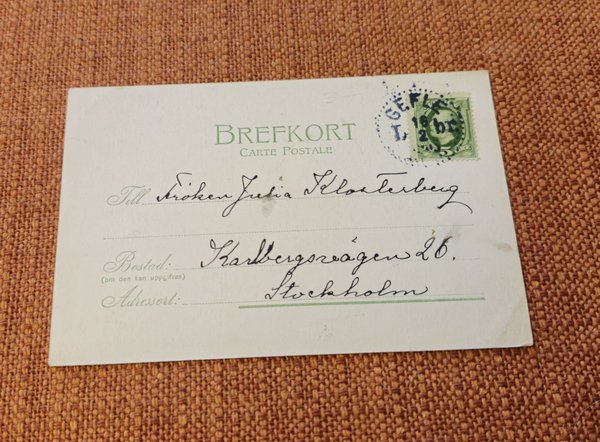 GEFLE
19
L br
2
BREFKORT
CARTE POSTALE
Till Fröken Julia Klosterberg
Bostad: Karlbergsvägen 26.
(om den kan uppgifvas)
Adressort: Stockholm